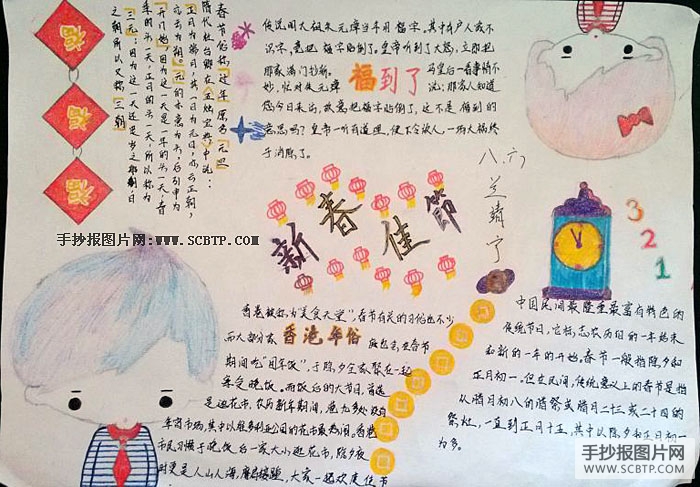 春节俗称“过年”原名“元旦
隋代杜台卿在《五烛宝典》中说：
“正月为端月，其一日为元日，亦云正朝，
亦云为朔。”元的本意为头，后引申为
“开始”，因为这一天是一年的头一天，春
季的头一天，正月的头一天，所以称为
“三元；因为这一天还是岁之朝，月
之朝所以又称“三朝
传说明太祖朱元璋当年用福字
其中有户人家不
识字，竟把福字贴倒了。皇帝听到了大怒，立即把
那家满门抄斩。
福到了
马皇后一看事情不
妙，忙对朱元璋
说：那家人知道
您今日来访，故意把福字贴倒了，这不是福到的
意思吗？皇帝一听有道理，便下令放人，一场大祸终
于消除了。
八、六
兰靖宁
新春佳節
3
2
1
手抄报图片网:www.SCBTP.COM
香港被称为“美食天堂”，春节有关的习俗也不少
而大部分家
香港年俗
庭也会在春节
期间吃“团年饭”，于除夕全家聚在一起
享受晚饭。而饭后的大节目，首选
是逛花市，农历新年期间，港九多处设有
年宵市场，其中以维多利亚公园的花市最为热闹，香港
市民习惯于晚饭后一家大小逛花市，除夕夜
时更是人山人海，摩肩接踵，大家一起欢度佳节
中国民间最隆重最富有特色的
传统节日，它标志农历旧的一年结束
和新的一年的开始。春节一般指除夕和
正月初一。但在民间，传统意义上的春节是指
从腊月初八的腊祭或腊月二十三或二十四的
祭灶，一直到正月十五，其中以除夕和正月初一
为多。
手抄报图片网
WWW.SCBTP.COM